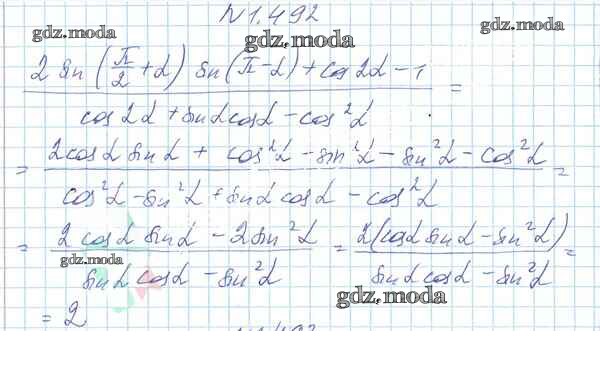 N 1.492
gdz.moda gdz.moda gdz.moda
2 sin (π/2 + α) sin (π - α) + cos 2α - 1
cos 2α + sin α cos α - cos²α
=
= 2 cos α sin α + cos²α - sin²α - sin²α - cos²α
cos²α - sin²α + sin α cos α - cos²α
=
= 2 cos α sin α - 2 sin²α = 2(cos α sin α - sin²α) =
gdz.moda
sin α cos α - sin²α sin α cos α - sin²α
gdz.moda
= 2